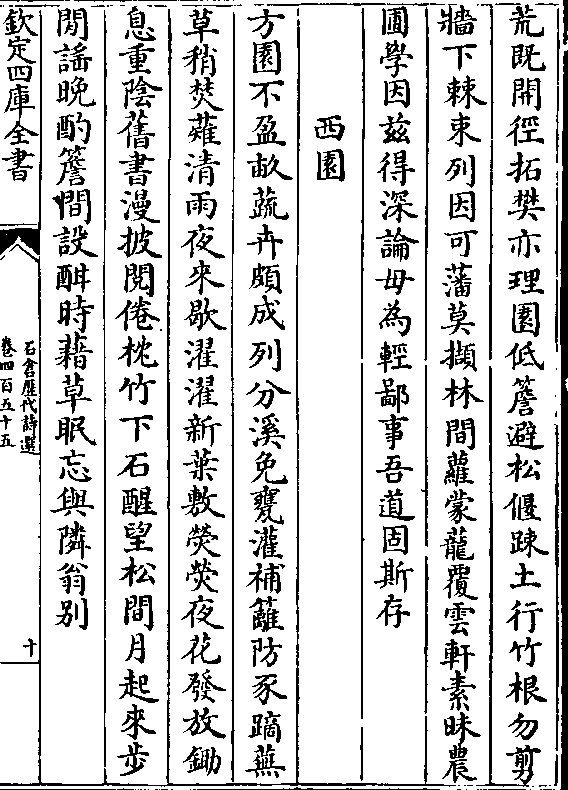 荒既開徑拓樊亦理園低簷避松偃踈土行竹根勿剪
牆下棘束列因可藩莫擷林間蘿蒙蘢覆雲軒素昧農
圃學因茲得深論毋為輕鄙事吾道固斯存
西園
方園不盈畝蔬卉頗成列分溪免甕灌補籬防豕蹢蕪
草稍焚薙清雨夜來歇濯濯新葉敷熒熒夜花發放鋤
息重陰舊書漫披閱倦枕竹下石醒望松間月起來步
閒謠晚酌簷間設酣時藉草眠忘與隣翁别
欽定四庫全書
石倉歷代詩選
卷四百五十五
十